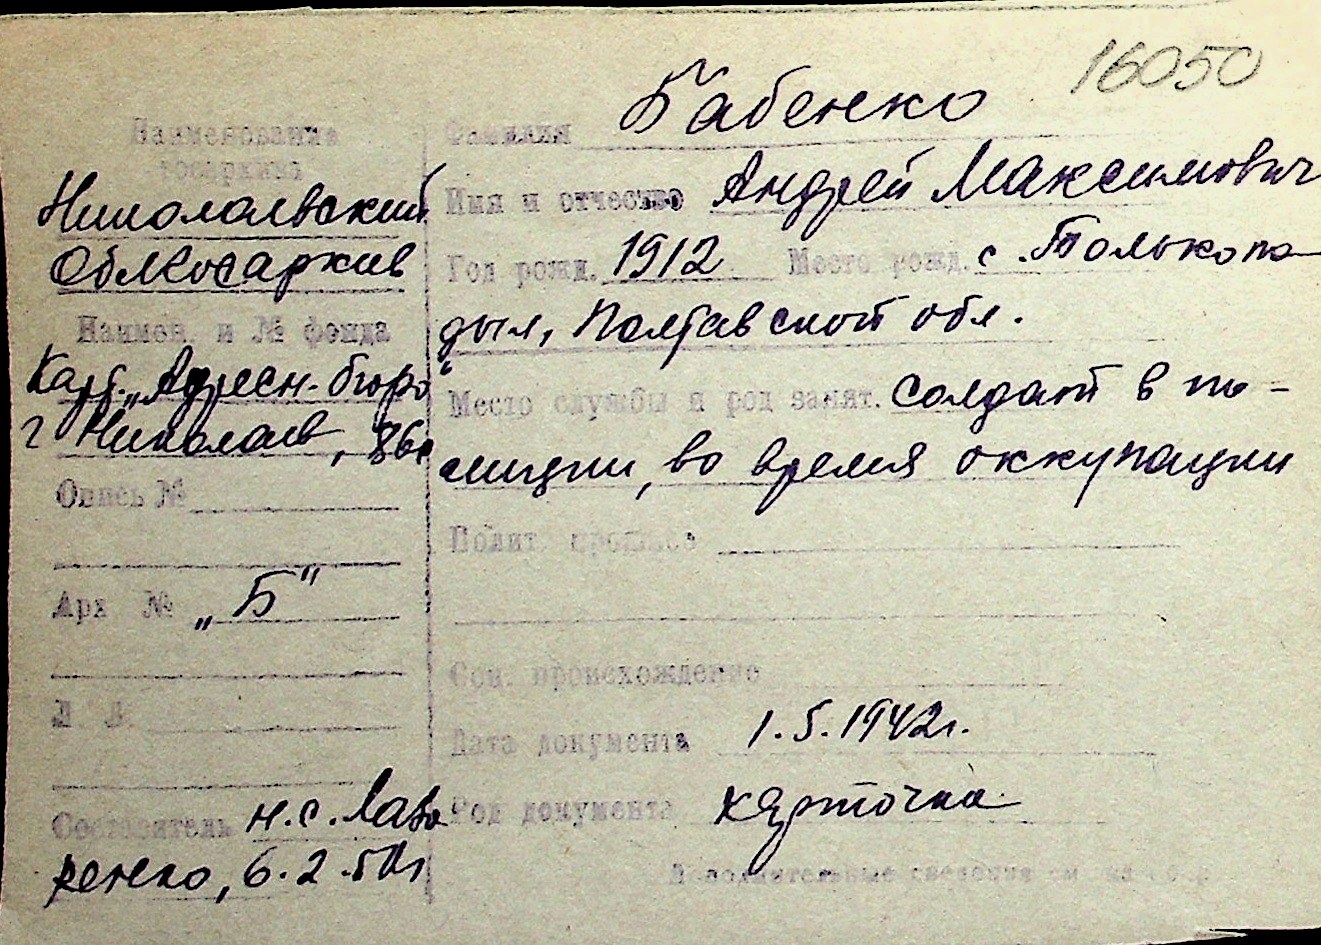 16050
Наименование
госархива
Николаевский
Облгосархив
Наимен. и № фонда
Карт. „Адресн-бюро“
г Николаев, 86а
Опись №
Арх № „Б"
Л Л.
Составитель н.с. Лав
ренко, 6.2.50г
Фамилия Бабенко
Имя и отчество Андрей Максимович
Год рожд. 1912 Место рожд. с.
Полтавской обл.
Место службы и род занят. солдат в по-
лиции, во время оккупации
Полит. прошлое
Соц. происхождение
Дата документа 1.5.1942г.
Род документа карточка
Дополнительные сведения см. на обор.